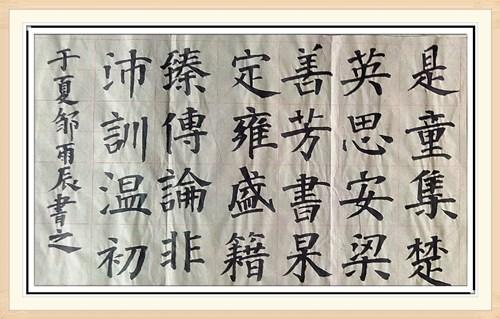 是童集楚
英思安梁
善芳書杲
定雍盛籍
臻傳論非
沛訓温初
于夏邹雨辰書之